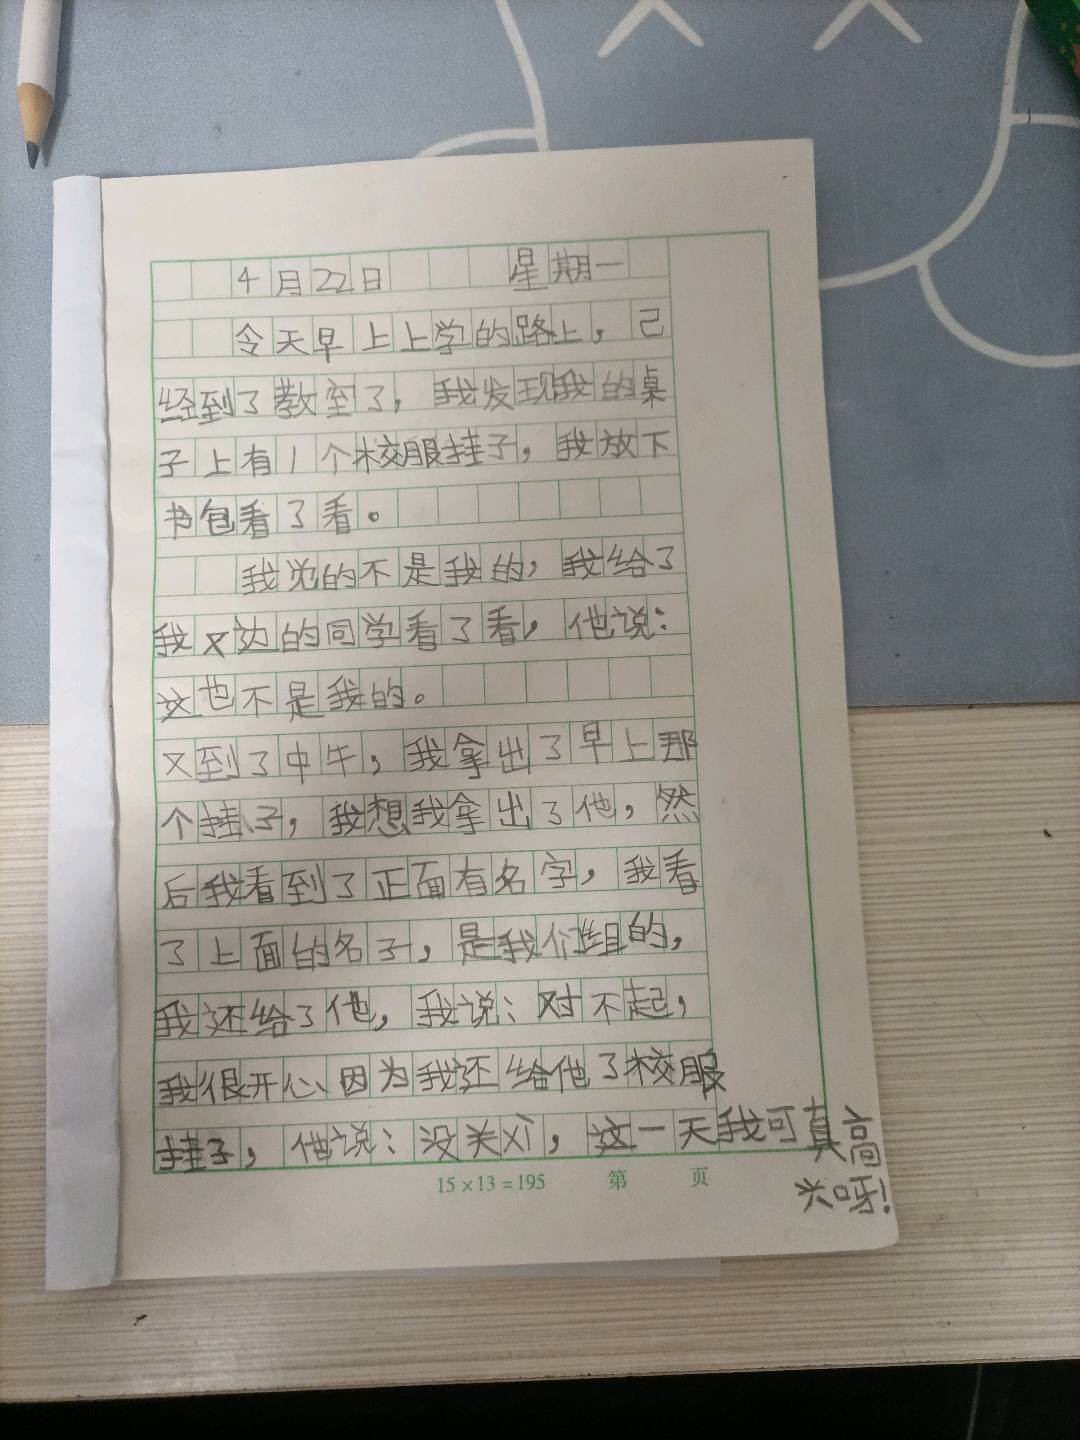 4月22日 星期一
令天早上上学的路上，己
经到了教室了，我发现我的桌
子上有1个校服挂子，我放下
书包看了看。
我觉的不是我的，我给了
我又边的同学看了看，他说：
这也不是我的。
又到了中牛，我拿出了早上那
个挂子，我想我拿出了他，然
后我看到了正面有名字，我看
了上面的名子，是我们组的，
我还给了他，我说：对不起，
我很开心因为我还给他了校服
挂子，他说：没关
这一天我可真高
兴呀！
15×13=195 第 页